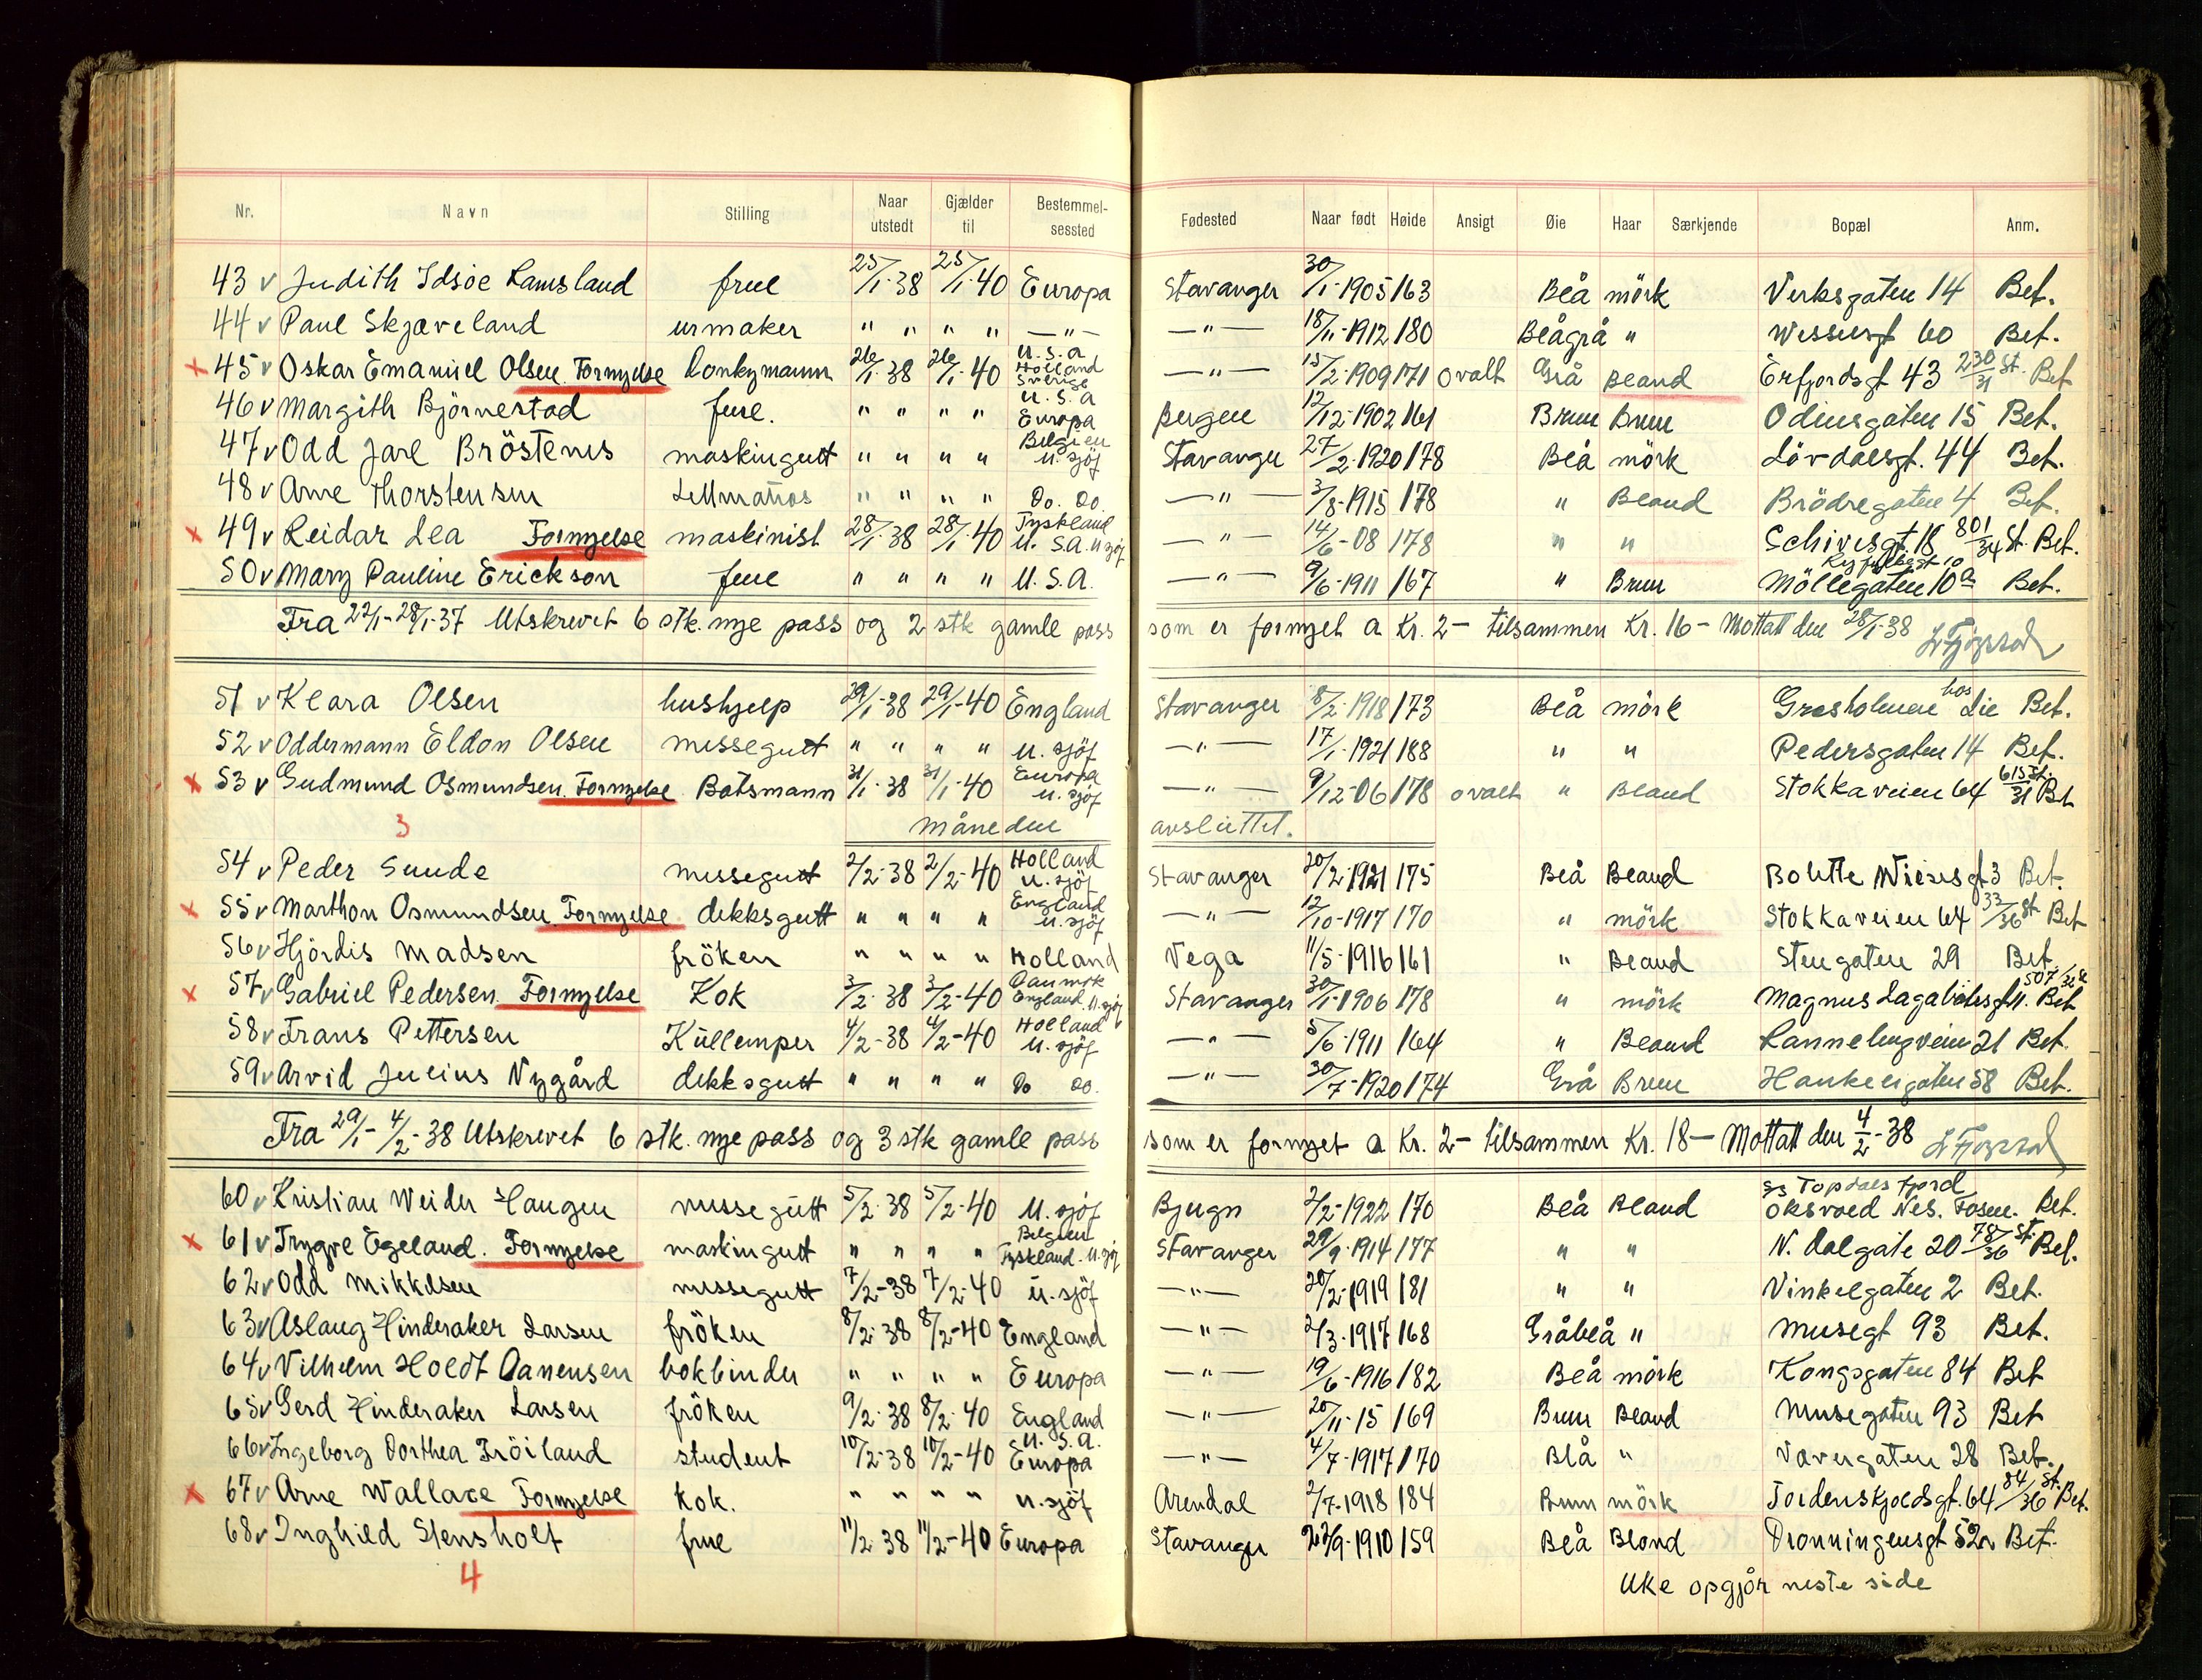 Nr. Navn Stilling Naar utstedt Gjælder til Bestemmel-sessted Fødested Naar født Høide Ansigt Øie Haar Særkjende Bopæl Anm.
43 v Judith Idsöe Ramsland frue 25/1-38 25/1-40 Europa Stavanger 30/1-1905 163 Blå mörk Verksgaten 14 Bet.
44 v Paul Skjæveland urmaker " " " " —"— —"— 18/11-1912 180 Blågrå " Wesselsgt 60 Bet.
x 45 v Oskar Emanuel Olsen. Fornyelse Donkymann 26/1-38 26/1-40 U.S.A Holland Sverige —"— 15/2-1909 171 ovalt Grå Bland Erfjordsgt 43 230/31 St. Bet
46 v Margith Björnestad frue. " " " " U.S.A Europa Bergen 12/12-1902 161 Brun Brun Odinsgaten 15 Bet.
47 v Odd Jarl Bröstenes maskingutt " " " " Belgien u. sjöf Stavanger 27/2-1920 178 Blå mörk Lövdalsgt. 44 Bet.
48 v Arne Thorstensen Lettmatros " " " " Do. Do. —"— 3/8-1915 178 " Bland Brödregaten 4 Bet.
x 49 v Reidar Lea Fornyelse maskinist 28/1-38 28/1-40 Tyskland U.S.A. u sjöf —"— 14/6-08 178 " " Schivesgt. 18 801/34 St. Bet.
50 v Mary Pauline Erickson frue " " " " U.S.A. —"— 9/6-1911 167 " Brun Möllegaten 10a Bet.
Fra 22/1-28/1-37 Utskrevet 6 stk. nye pass og 2 stk gamle pass som er fornyet a Kr. 2- tilsammen Kr. 16- Mottatt den 28/1-38
51 v Klara Olsen hushjelp 29/1-38 29/1-40 England Stavanger 8/2-1918 173 Blå mörk Gresholmen hos Lie Bet.
52 v Oddermann Eldon Olsen messegutt " " " " u. sjöf —"— 17/1-1921 188 " " Pedersgaten 14 Bet.
x 53 v Gudmund Osmundsen. Fornyelse Båtsmann 31/1-38 31/1-40 Europa u. sjöf —"— 9/12-06 178 ovalt " Bland Stokkaveien 64 615 St. 31 Bet
3 måneden avsluttet.
54 v Peder Sunde messegutt 2/2-38 2/2-40 Holland u. sjöf Stavanger 20/2-1921 175 Blå Bland Bolette Wiesesgt 3 Bet.
x 55 v Marthon Osmundsen Fornyelse dekksgutt " " " " England u. sjöf —"— 12/10-1917 170 " mörk Stokkaveien 64 33/36 St Bet
56 v Hjördis Madsen fröken " " " " Holland Vega 11/5-1916 161 " Bland Stengaten 29 Bet.
x 57 v Gabriel Pedersen Fornyelse Kok 3/2-38 3/2-40 Danmark England. u. sjöf Stavanger 30/1-1906 178 " mörk Magnus Lagabötesgt 11. Bet
58 v Frans Pettersen Kullemper 4/2-38 4/2-40 Holland u. sjöf —"— 5/6-1911 164 " Bland Rannebergveien 21 Bet.
59 v Arvid Julius Nygård dekksgutt " " " " Do Do. —"— 30/7-1920 174 Grå Brun Haukeligaten 58 Bet.
Fra 29/1-4/2-38 Utskrevet 6 stk. nye pass og 3 stk gamle pass som er fornyet a Kr. 2- tilsammen Kr. 18- Mottatt den 4/2-38
60 v Kristian Weider Haugen messegutt 5/2-38 5/2-40 U. sjöf Bjugn 2/2-1922 170 Blå Bland ss Topdalsfjord Oksvoed Nes. Fosen. Bet.
x 61 v Trygve Egeland. Fornyelse maskingutt " " " " Belgien Tyskland. u. sjöf Stavanger 29/9-1914 177 " " N. Dalgate 20 78/36 St. Bet.
62 v Odd Mikkelsen messegutt 7/2-38 7/2-40 u. sjöf —"— 20/2-1919 181 " " Vinkelgaten 2 Bet.
63 v Aslaug Hinderaker Larsen fröken 8/2-38 8/2-40 England —"— 2/3-1917 168 Gråblå " Musegt 93 Bet.
64 v Vilhelm Holdt Danensen bokbinder " " " " Europa —"— 19/6-1916 182 Blå mörk Kongsgaten 84 Bet
65 v Gerd Hinderaker Larsen fröken 9/2-38 8/2-40 England —"— 20/11-15 169 Brun Bland Musegaten 93 Bet
66 v Ingeborg Dorthea Fröiland student 10/2-38 10/2-40 U.S.A. Europa —"— 4/7-1917 170 Blå " Vavergaten 28 Bet.
x 67 v Arne Wallace Fornyelse Kok. " " " " u. sjöf Arendal 2/7-1918 184 Brun mörk Tordenskjoldsgt. 64 84/36 St. Bet.
68 v Inghild Stensholt frue 11/2-38 11/2-40 Europa Stavanger 27/9-1910 159 Blå Blond Dronningensgt 52 Bet.
4 Uke opgjör neste side